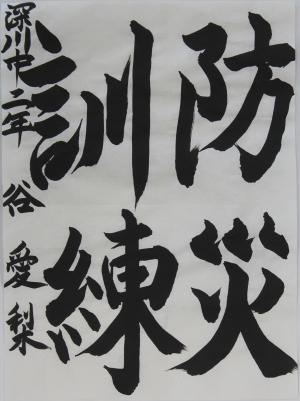 防災
訓練
深川中二年 谷 愛梨